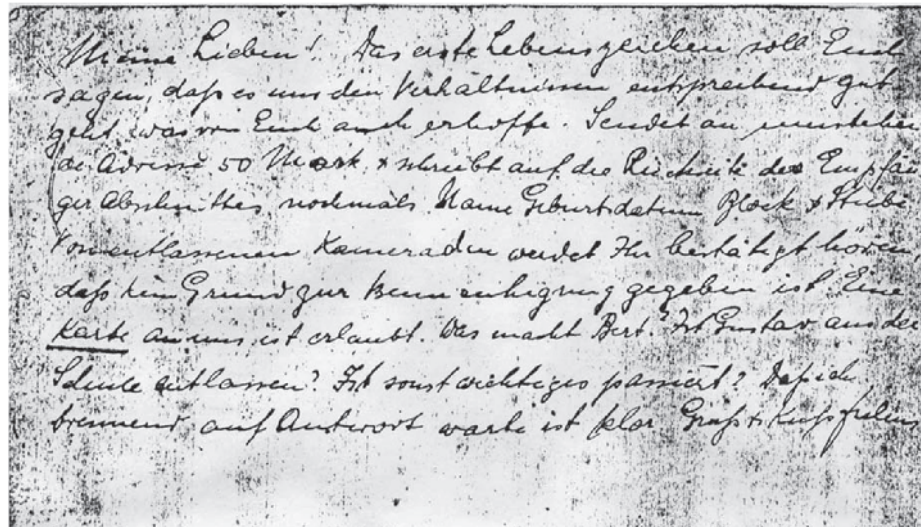 Meine Lieben! Das erste Lebenszeichen soll Euch
sagen, daß es uns den Verhältnissen entsprechend gut
geht was von Euch auch erhoffe. Sendet an umstehen
de Adresse 50 Mark + schreibt auf die Rückseite des Empfän
ger Abschnittes nochmals Name Geburtsdatum Block + Stube
Von entlassenen Kameraden werdet Ihr bestätigt hören
daß kein Grund zur Beunruhigung gegeben ist. Eine
Karte an uns ist erlaubt. Was macht Bert? Ist Gustav aus der
Schule entlassen? Ist sonst wichtiges passiert? Daß ich
brennend auf Antwort warte ist klar Gruß + Kuß